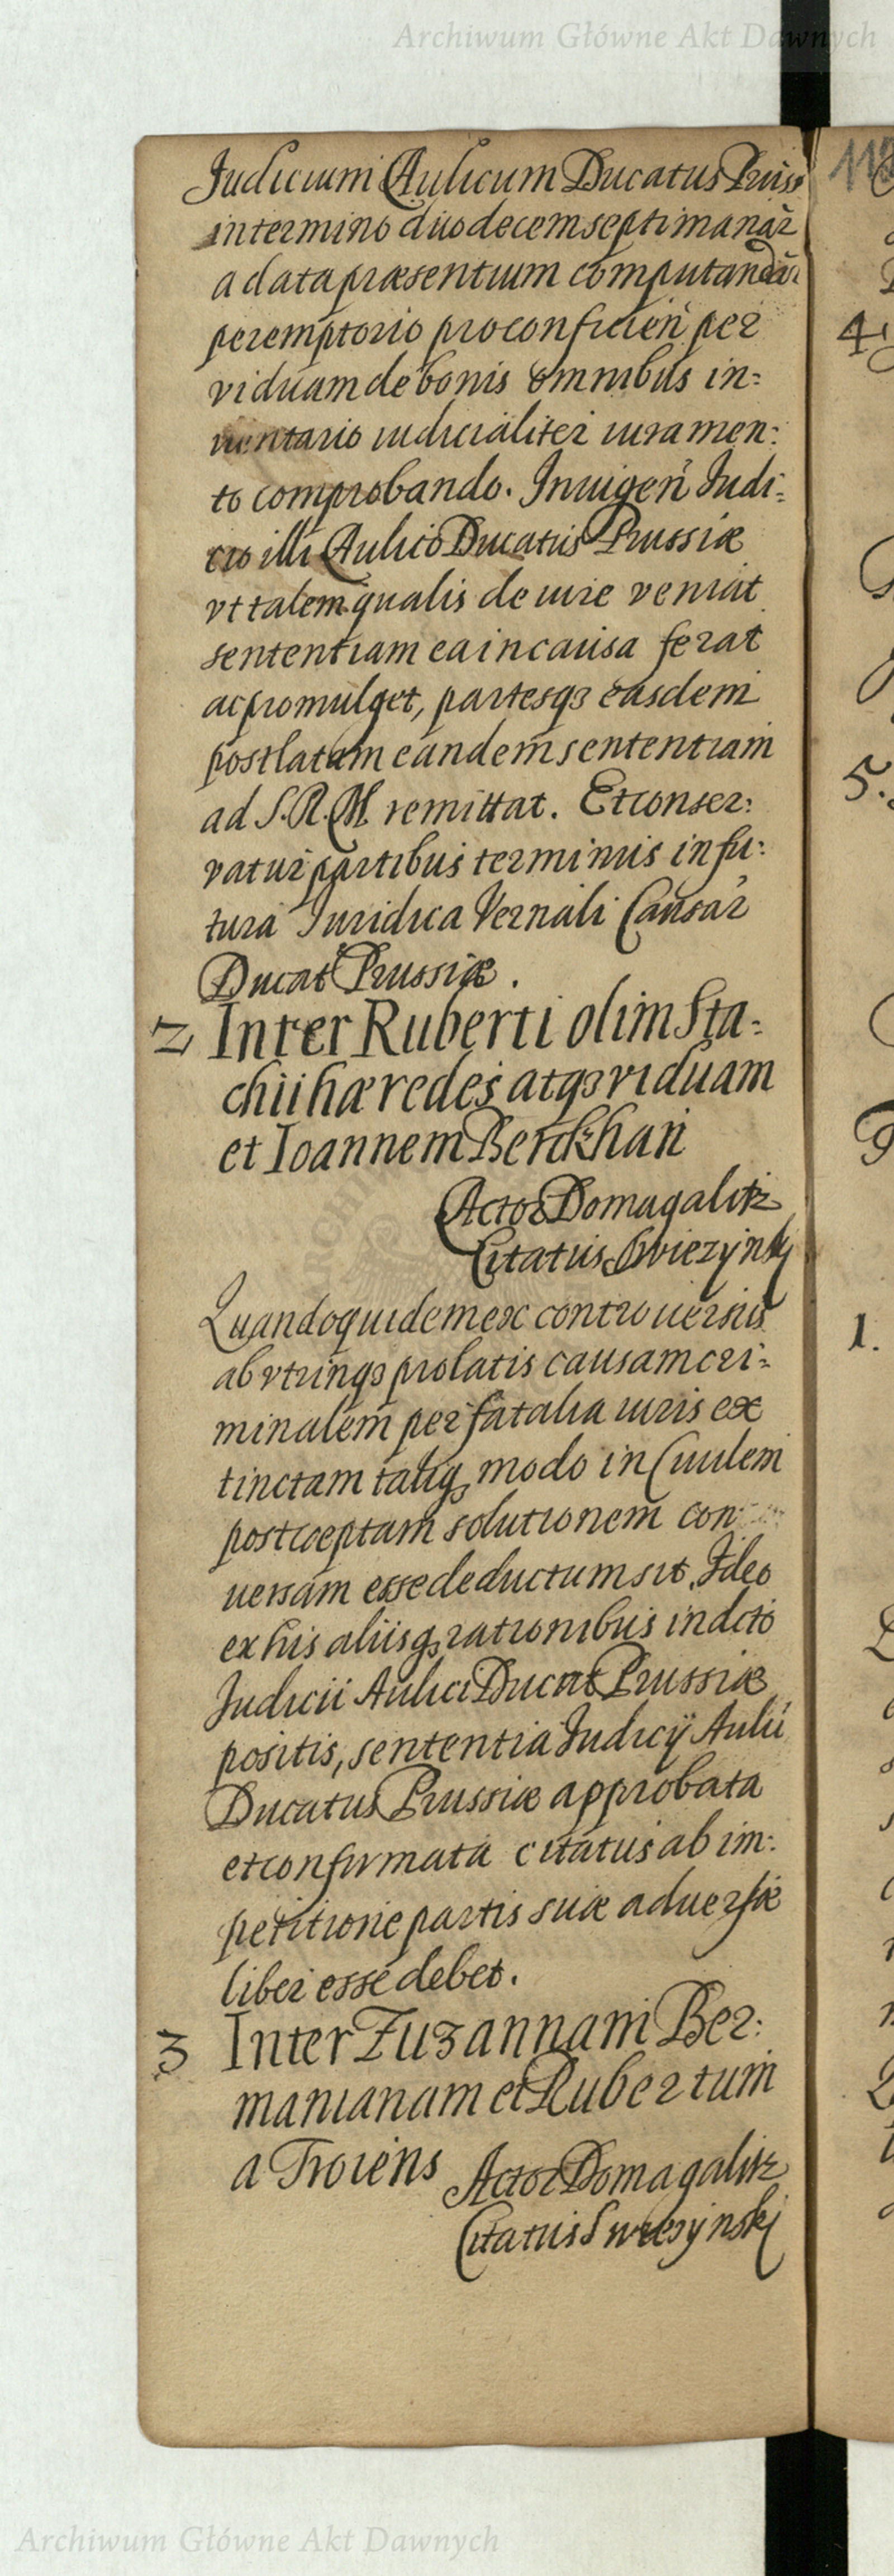 Archiwum Główne Akt Dawnych
Judicium Aulicum Ducatus Pruss
in termino duodecem septimanar̃
a data præsentium computandar̃
peremptorio pro conficien̄ per
viduam de bonis omnibus in:
uentario iudicialiter iuramen:
to comprobando. Iniugen̄ Judi:
cio illi Aulico Ducatus Prussiæ
vt talem qualis de iure veniat
sententiam ea in causa ferat
ac promulget, partesqз easdem
post latam eandem sententiam
ad S.R.M remittat. Et conser:
vatur partibus terminus in fu:
tura Juridica Vernali Causar̃
Ducat Prussiæ.
2 Inter Ruberti olim Sta:
chii hæredes atqз viduam
et Ioannem Berckhan
Actor Domagalitz
Citatus Swiezynskj
Quandoquidem ex controuersiis
ab vtrinqз prolatis causam cri:
minalem per fatalia iuris ex
tinctam taliqз modo in Ciuilem
post coeptam solutionem con
uersam esse deductum sit. Ideo
ex his aliisqз rationibus in dcto
Judicii Aulici Ducat Prussiæ
positis, sententia Judicÿ Aulii
Ducatus Prussiæ approbata
et confirmata citatus ab im:
petitione partis suæ aduersæ
liber esse debet.
3 Inter Zuzannam Ber:
manianam et Rubertum
a Troiens Actor Domagalitz
Citatus Swiesynskj
112
4.
5.
1.
Archiwum Główne Akt Dawnych